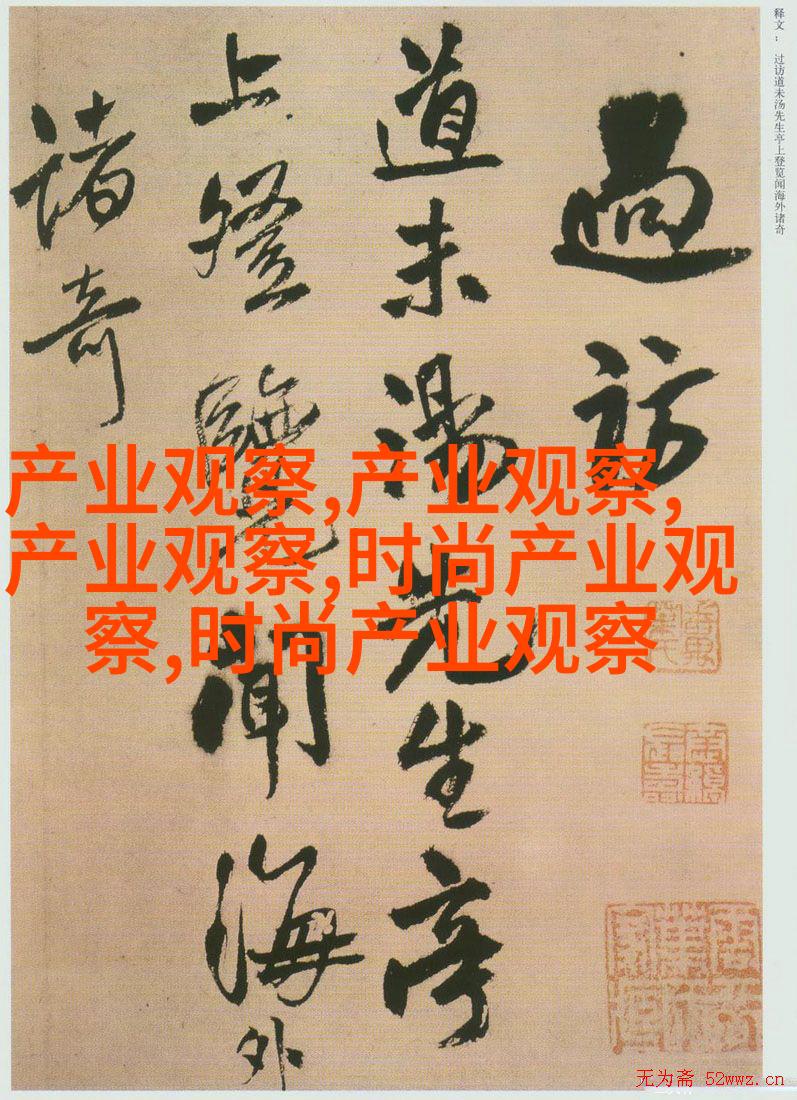 過訪
道未湯先生亭
上登覽聞海外
諸奇
释文： 过访道未汤先生亭上登览闻海外诸奇
产业观察,产业观察,
产业观察,时尚产业观
察,时尚产业观察
无为斋 52wwz.cn